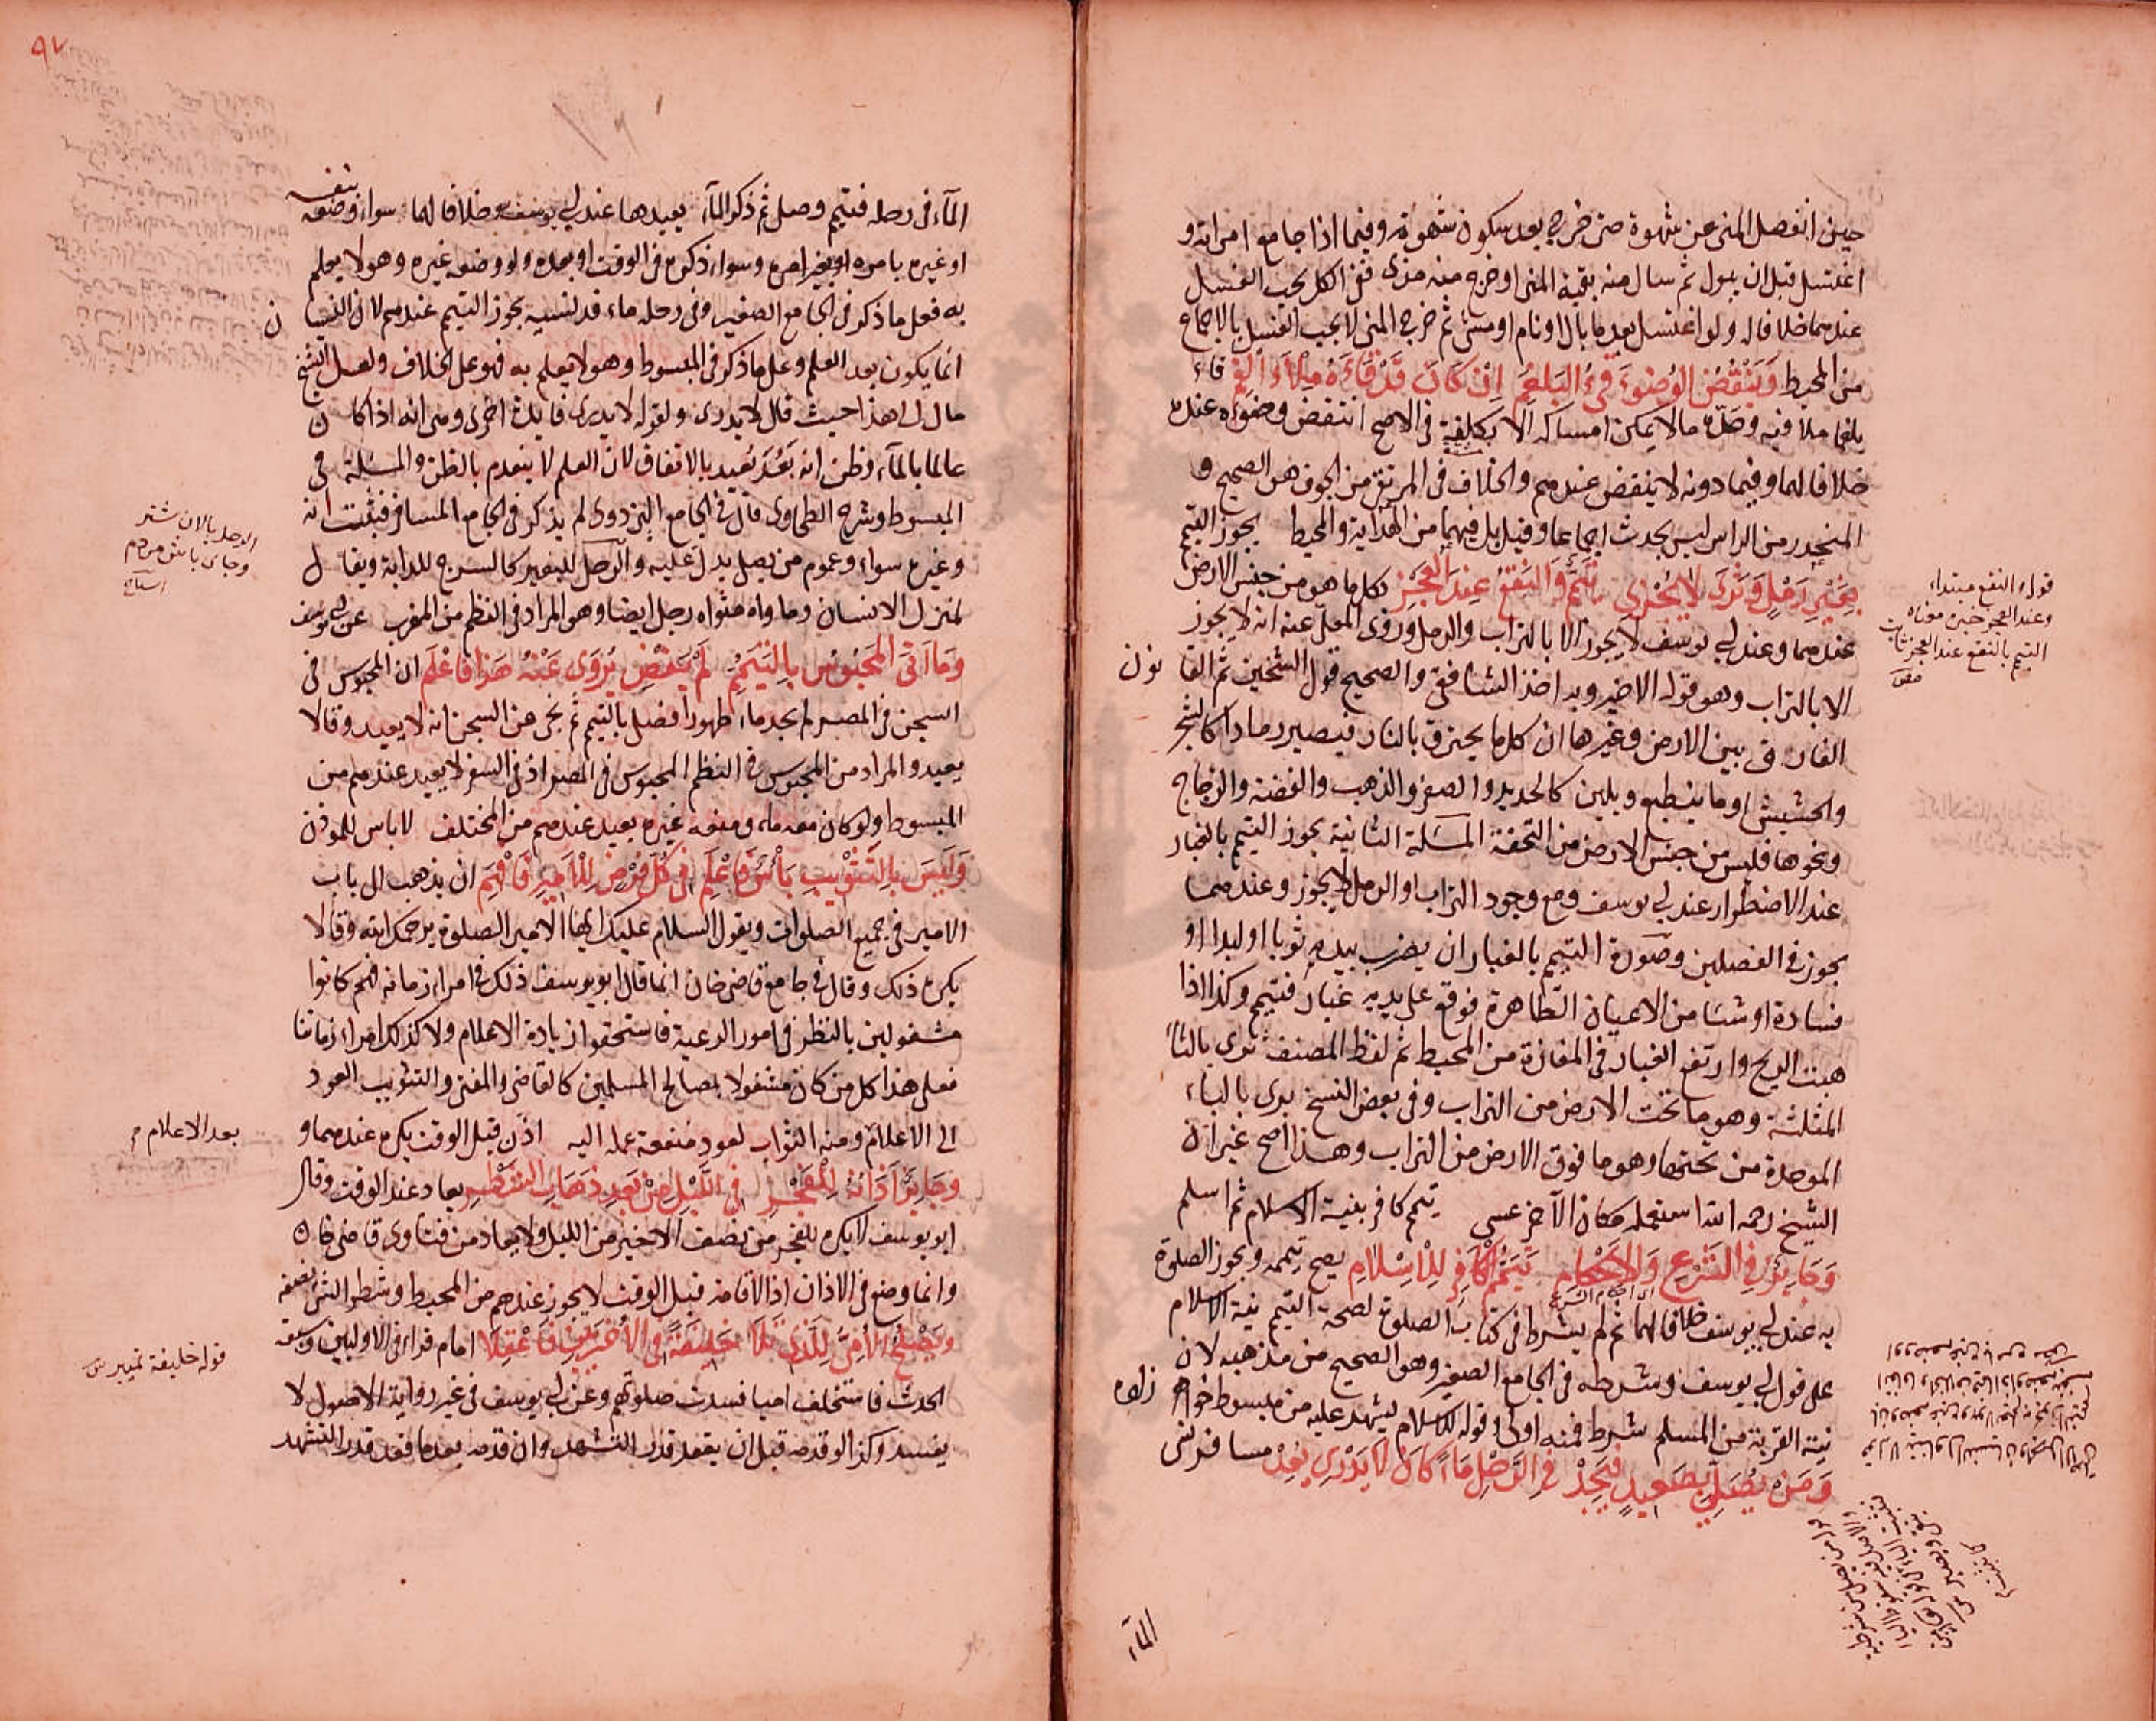 حين انفصل المنى عن شهوة حتى خرج بعد سكون شهوة وفيما اذا جامع امراته و
اغتسل قبل ان يبول ثم سال منه بقية المنى او خرج منه مذى ففى الكل يجب الغسل
عندهما خلافا له ولو اغتسل بعد ما بال او نام او مشى ثم خرج المنى لا يجب الغسل بالاجماع
من المحيط وَيَنْقُضُ الوُضوءَ قَىءُ البَلغَمِ اِنْ كَانَ قَدْ قَاءَهُ مِلْاَءَ الفَمِ قاء
بلغما ملا فيه وحده مالا يمكن امساكه الا بكلفة فى الاصح انتقض وضوءه عنده
خلافا لهما وفيما دونه لا ينقض عندهم والخلاف فى المرتقى من الجوف هو الصحيح و
المنحدر من الراس ليس بحدث اجماعا وقيل بل فيهما من الهداية والمحيط يجوز التيمم
بِغَيْرِ رَمْلٍ وَثَرًى لَا يُجْزِى تَيَمُّمٌ وَالنَّقْعُ عِنْدَ العَجْزِ بكل ما هو من جنس الارض
عندهما وعند ابى يوسف لا يجوز الا بالتراب والرمل وروى المعلى عنه انه لا يجوز
الا بالتراب وهو قوله الاخير وبه اخذ الشافعى والصحيح قول الشيخين ثم الفا
الفارق بين الارض وغيرها ان كل ما يحترق بالنار فيصير رمادا كالشجر
والحشيش او ما ينطبع ويلين كالحديد والصفر والذهب والفضة والزجاج
ونحوها فليس من جنس الارض من التحفة المسئلة الثانية يجوز التيمم بالغبار
عند الاضطرار عند ابى يوسف ومع وجود التراب او الرمل لا يجوز وعندهما
يجوز فى الفصلين وصورة التيمم بالغبار ان يضرب بيديه ثوبا او لبدا او
وسادة او شيئا من الاعيان الطاهرة فوقع على يديه غبار فتيمم وكذا اذا
هبت الريح وارتفع الغبار فى المفازة من المحيط ثم لفظ المصنف ثرى بالثا
المثلثة وهو ما تحت الارض من التراب وفى بعض النسخ برى بالباء
الموحدة من تحتها وهو ما فوق الارض من التراب وهذا اصح غير ان
الشيخ رحمه الله استعمله مكان الاخر عسى تيمم كافر بنية الاسلام ثم اسلم
وَجَايِزٌ فِى الشَّرْعِ وَالاَحْكَامِ تَيَمُّمُ الْكَافِرِ لِلْاِسْلَامِ يصح تيممه ويجوز الصلوة
به عند ابى يوسف خلافا لهما ثم لم يشرط فى كتاب الصلوة لصحة التيمم نية الاسلام
على قول ابى يوسف وشرطه فى الجامع الصغير وهو الصحيح من مذهبه لان
نية القربة من المسلم شرط فمنه اولى وقوله للاسلام ليشهد عليه من مبسوط خواهر زاده
وَمَنْ يُصَلِّى بِصَعِيدٍ فَيَجِدْ فِى الرَّحْلِ مَاءً كَانَ لَا يَدْرِى يُعِدْ مسافر نسى
الماء
قوله النقع مبتداء
وعند العجز خبره معناه
التيمم بالنقع عند العجز ثابت
٩٧
الماء فى رحله فتيمم وصلى ثم ذكر الماء يعيدها عند ابى يوسف خلافا لهما سواء وضعه بنفسه
او غيره بامره او بغير امره وسواء ذكره فى الوقت او بعده ولو وضعه غيره وهو لا يعلم
به فعلى ما ذكر فى الجامع الصغير وفى رحله ماء قد نسيه يجوز التيمم عندهم لان النسيا ن
انما يكون بعد العلم وعلى ما ذكر فى المبسوط وهو لا يعلم به فهو على الخلاف ولعل الشيخ
مال الى هذا حيث قال لا يدرى ولقوله لا يدرى فايدة اخرى وهى انه اذا كان
عالما بالماء وظن انه بَعُدَ يعيد بالاتفاق لان العلم لا ينعدم بالظن والمسئلة فى
المبسوط وشرح الطحاوى قال فى الجامع البزدوى لم يذكر فى الجامع المسافر فيثبت انه
وغيره سواء وعموم من يصل يدل عليه والرحل للبعير كالسرج للدابة ويقال
لمنزل الانسان وماواه مثواه رحل ايضا وهو المراد فى النظم من المغرب عن ابى يوسف
وَمَا اَتَى المَحْبُوسُ بِالتَيَمُّمِ لَمْ يَقْضِ يُرْوَى عَنْهُ هَذَا فَاعْلَمِ ان المحبوس فى
السجن فى المصر لم يجد ماء طهورا فصلى بالتيمم ثم نجى من السجن انه لا يعيد وقالا
يعيد والمراد من المحبوس فى النظم المحبوس فى المصر اذ فى السفر لا يعيد عندهم من
المبسوط ولو كان معه ماء ومنعه غيره يعيد عندهم من المختلف لا باس للموذن
وَلَيْسَ بِالتَّثْوِيبِ بَأْسٌ فَاعْلَمِ فِى كُلِّ فَرْضٍ لِلْاَمِيرِ فَافْهَمِ ان يذهب الى باب
الامير فى جميع الصلوات ويقول السلام عليك ايها الامير الصلوة يرحمك الله وقالا
يكره ذلك وقال فى جامع قاضى خان انما قال ابو يوسف ذلك فى امراء زمانه لانهم كانوا
مشغولين بالنظر فى امور الرعية فاستحقوا زيادة الاعلام ولا كذلك امراء زماننا
فعلى هذا كل من كان مشغولا بمصالح المسلمين كالقاضى والمفتى والتثويب العود
الى الاعلام ومنه الثواب لعود منفعة عمله اليه اذن قبل الوقت يكره عندهما و
وَجَايِزٌ اَذَانُهُ لِلْفَجْرِ فِى اللَّيْلِ مِنْ بَعْدِ ذَهَابِ الشَّطْرِ يعاد عند الوقت وقال
ابو يوسف لا يكره للفجر من نصف الاخير من الليل ولا يعاد من فتاوى قاضى خان
وانما وضع فى الاذان اذ الاقامة قبل الوقت لا يجوز عندهم من المحيط وشطر الشئ نصفه
وَيَصْلُحُ الاُمِّىُّ لِلَّذِى تَلَا خَلِيفَةً فِى الاُخْرَيَيْنِ فَاعْقِلَا امام قراء فى الاوليين وسبقه
الحدث فاستخلف اميا فسدت صلوتهم وعن ابى يوسف فى غير رواية الاصول لا
يفسد وكذا لو قدمه قبل ان يقعد قدر التشهد وان قدمه بعدما قعد قدر التشهد
بعد الاعلام
قوله خليفة تمييز